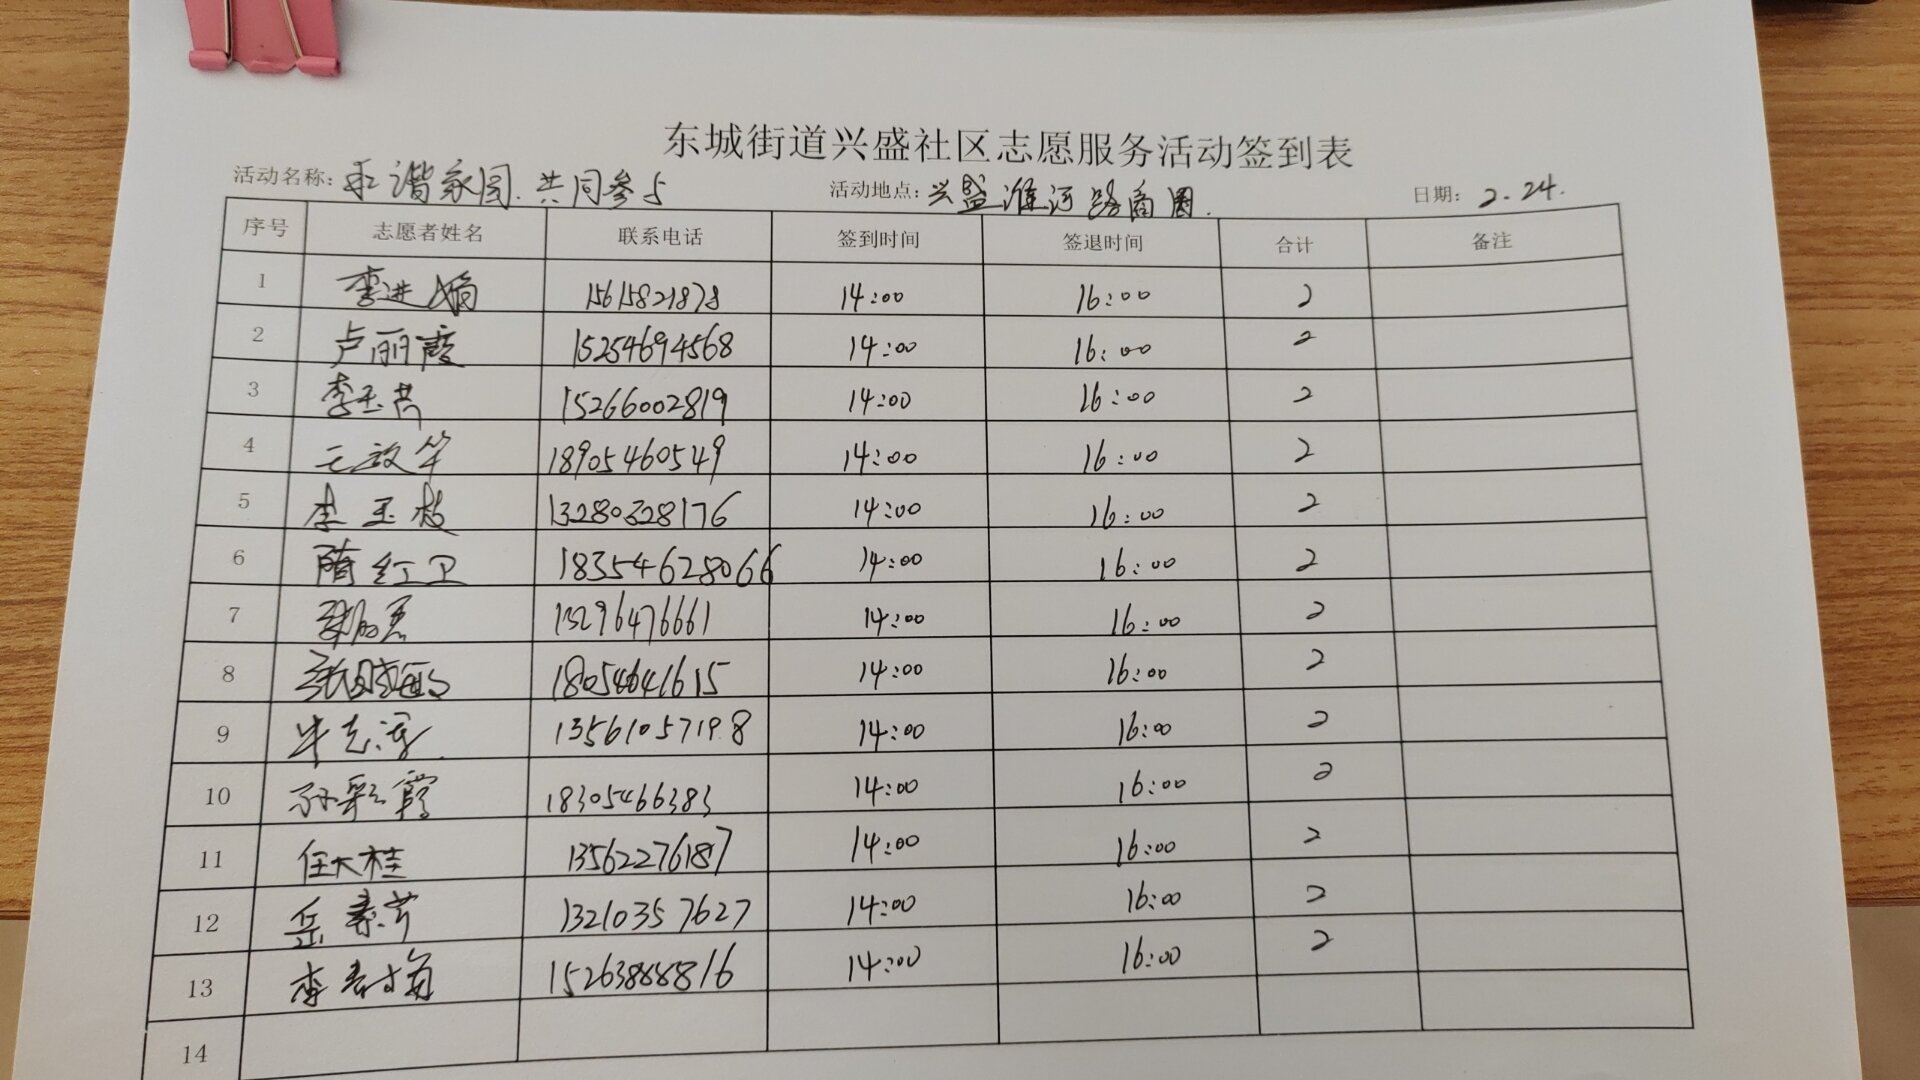 东城街道兴盛社区志愿服务活动签到表
活动名称: 和谐家园.共同参与 活动地点: 兴盛淮河路商圈. 日期: 2.24.
序号 志愿者姓名 联系电话 签到时间 签退时间 合计 备注
1 李进娟 15615821878 14:00 16:00 2
2 卢丽霞 15254694568 14:00 16:00 2
3 李玉芹 15266002819 14:00 16:00 2
4 18905460549 14:00 16:00 2
5 李玉枝 13280328176 14:00 16:00 2
6 隋红卫 18354628066 14:00 16:00 2
7 13296476661 14:00 16:00 2
8 张晓梅 18054641615 14:00 16:00 2
9 13561057198 14:00 16:00 2
10 孙彩霞 18305466383 14:00 16:00 2
11 任大桂 13562276187 14:00 16:00 2
12 岳素芹 13210357627 14:00 16:00 2
13 李春梅 15263888816 14:00 16:00 2
14